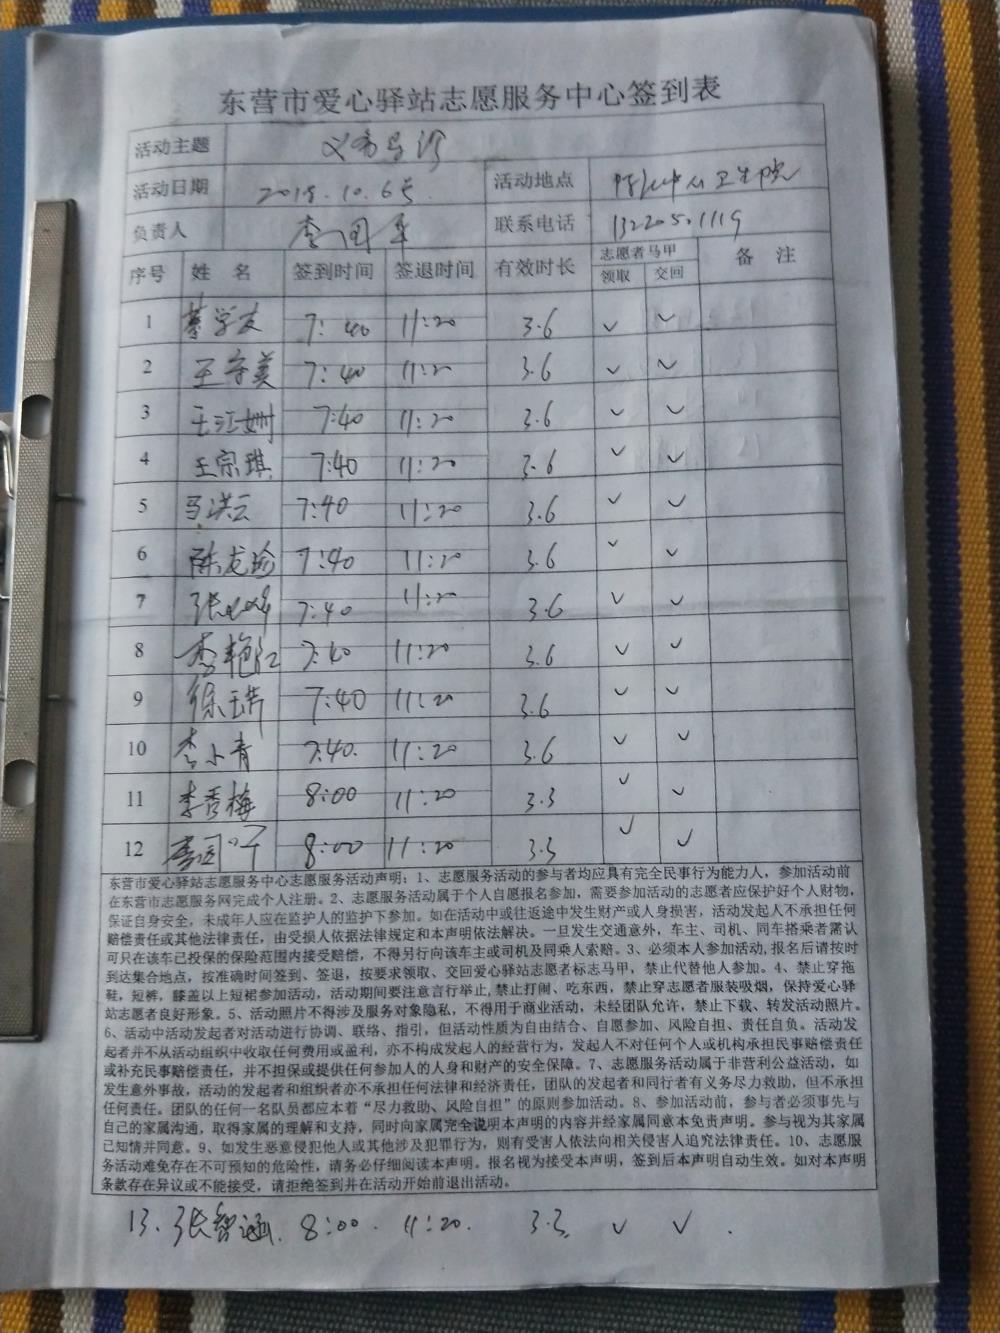 东营市爱心驿站志愿服务中心签到表
活动主题 义务导诊
活动日期 2018.10.6号 活动地点 卫生院
负责人 李国平 联系电话 13220501119
序号 姓 名 签到时间 签退时间 有效时长 志愿者马甲 备 注
领取 交回
1 7:40 11:20 3.6 ✓ ✓
2 王守美 7:40 11:20 3.6 ✓ ✓
3 王江姗 7:40 11:20 3.6 ✓ ✓
4 王宗琪 7:40 11:20 3.6 ✓ ✓
5 马洪云 7:40 11:20 3.6 ✓ ✓
6 陈龙珍 7:40 11:20 3.6 ✓ ✓
7 7:40 11:20 3.6 ✓ ✓
8 李艳红 7:40 11:20 3.6 ✓ ✓
9 7:40 11:20 3.6 ✓ ✓
10 李小青 7:40. 11:20 3.6 ✓ ✓
11 李秀梅 8:00 11:20 3.3 ✓ ✓
12 8:00 11:20 3.3 ✓ ✓
东营市爱心驿站志愿服务中心志愿服务活动声明：1、志愿服务活动的参与者均应具有完全民事行为能力人，参加活动前
在东营市志愿服务网完成个人注册。2、志愿服务活动属于个人自愿报名参加，需要参加活动的志愿者应保护好个人财物，
保证自身安全，未成年人应在监护人的监护下参加。如在活动中或往返途中发生财产或人身损害，活动发起人不承担任何
赔偿责任或其他法律责任，由受损人依据法律规定和本声明依法解决。一旦发生交通意外，车主、司机、同车搭乘者需认
可只在该车已投保的保险范围内接受赔偿，不得另行向该车主或司机及同乘人索赔。3、必须本人参加活动,报名后请按时
到达集合地点，按准确时间签到、签退，按要求领取、交回爱心驿站志愿者标志马甲，禁止代替他人参加。4、禁止穿拖
鞋，短裤，膝盖以上短裙参加活动，活动期间要注意言行举止,禁止打闹、吃东西，禁止穿志愿者服装吸烟，保持爱心驿
站志愿者良好形象。5、活动照片不得涉及服务对象隐私，不得用于商业活动，未经团队允许，禁止下载、转发活动照片。
6、活动中活动发起者对活动进行协调、联络、指引，但活动性质为自由结合、自愿参加、风险自担、责任自负。活动发
起者并不从活动组织中收取任何费用或盈利，亦不构成发起人的经营行为，发起人不对任何个人或机构承担民事赔偿责任
或补充民事赔偿责任，并不担保或提供任何参加人的人身和财产的安全保障。7、志愿服务活动属于非营利公益活动，如
发生意外事故，活动的发起者和组织者亦不承担任何法律和经济责任，团队的发起者和同行者有义务尽力救助，但不承担
任何责任。团队的任何一名队员都应本着“尽力救助、风险自担”的原则参加活动。8、参加活动前，参与者必须事先与
自己的家属沟通，取得家属的理解和支持，同时向家属完全说明本声明的内容并经家属同意本免责声明。参与视为其家属
已知情并同意。9、如发生恶意侵犯他人或其他涉及犯罪行为，则有受害人依法向相关侵害人追究法律责任。10、志愿服
务活动难免存在不可预知的危险性，请务必仔细阅读本声明。报名视为接受本声明，签到后本声明自动生效。如对本声明
条款存在异议或不能接受，请拒绝签到并在活动开始前退出活动。
13. 张智涵. 8:00. 11:20. 3.3 ✓ ✓ .